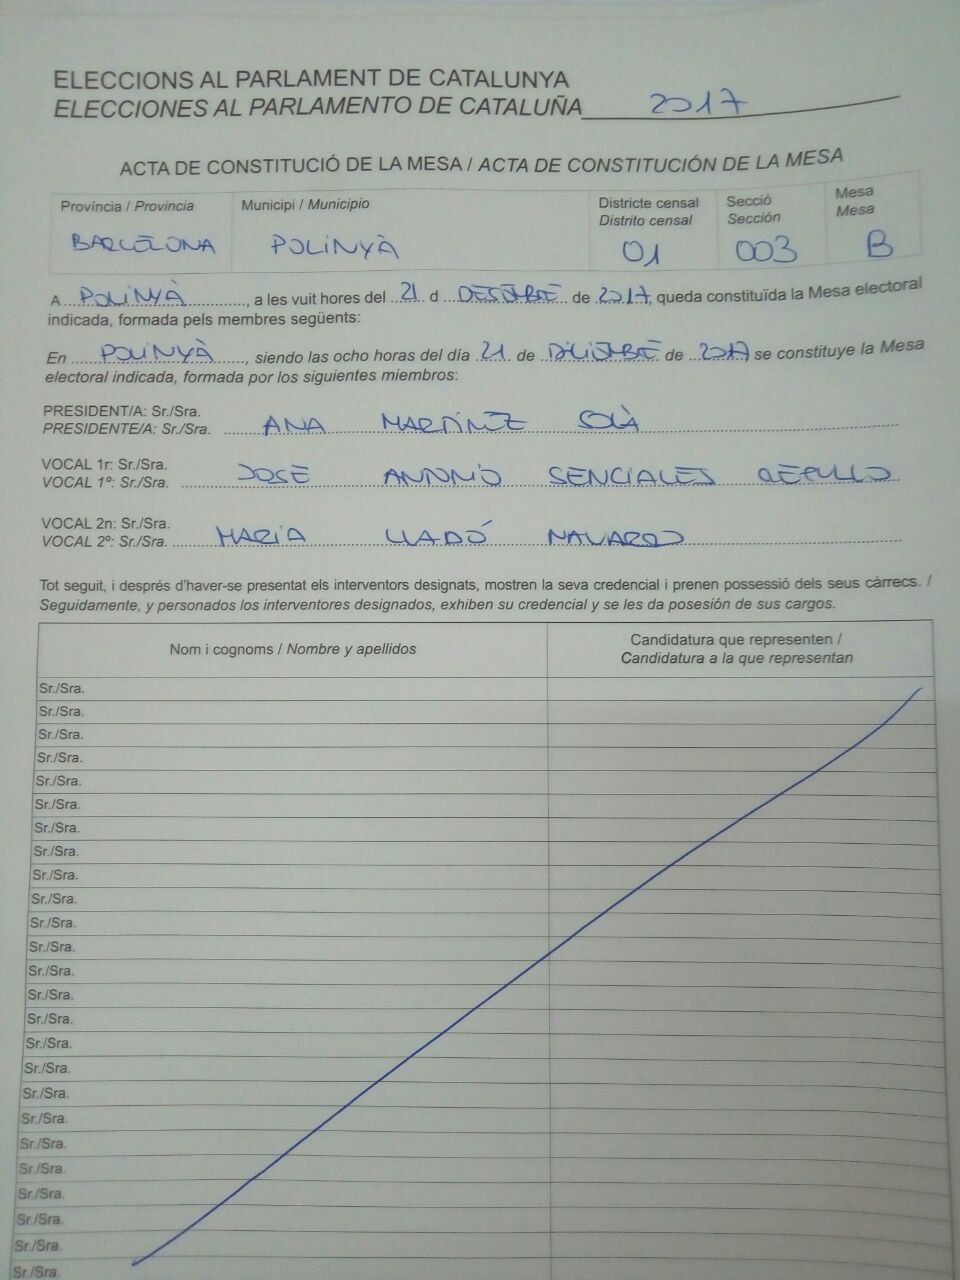 ELECCIONS AL PARLAMENT DE CATALUNYA
ELECCIONES AL PARLAMENTO DE CATALUÑA 2017
ACTA DE CONSTITUCIÓ DE LA MESA / ACTA DE CONSTITUCIÓN DE LA MESA
Província / Provincia Municipi / Municipio Districte censal Secció Mesa
Distrito censal Sección Mesa
BARCELONA POLINYÀ 01 003 B
A POLINYÀ, a les vuit hores del 21 d DESEMBRE de 2017, queda constituïda la Mesa electoral
indicada, formada pels membres següents:
En POLINYÀ, siendo las ocho horas del día 21 de DICIEMBRE de 2017 se constituye la Mesa
electoral indicada, formada por los siguientes miembros:
PRESIDENT/A: Sr./Sra.
PRESIDENTE/A: Sr./Sra. ANA MARTÍNEZ SOLÀ
VOCAL 1r: Sr./Sra.
VOCAL 1º: Sr./Sra. JOSE ANTONIO SENCIALES REPULLO
VOCAL 2n: Sr./Sra.
VOCAL 2º: Sr./Sra. MARIA LLADÓ NAVARRO
Tot seguit, i després d'haver-se presentat els interventors designats, mostren la seva credencial i prenen possessió dels seus càrrecs. /
Seguidamente, y personados los interventores designados, exhiben su credencial y se les da posesión de sus cargos.
Nom i cognoms / Nombre y apellidos Candidatura que representen /
Candidatura a la que representan
Sr./Sra.
Sr./Sra.
Sr./Sra.
Sr./Sra.
Sr./Sra.
Sr./Sra.
Sr./Sra.
Sr./Sra.
Sr./Sra.
Sr./Sra.
Sr./Sra.
Sr./Sra.
Sr./Sra.
Sr./Sra.
Sr./Sra.
Sr./Sra.
Sr./Sra.
Sr./Sra.
Sr./Sra.
Sr./Sra.
Sr./Sra.
Sr./Sra.
Sr./Sra.
Sr./Sra.
Sr./Sra.